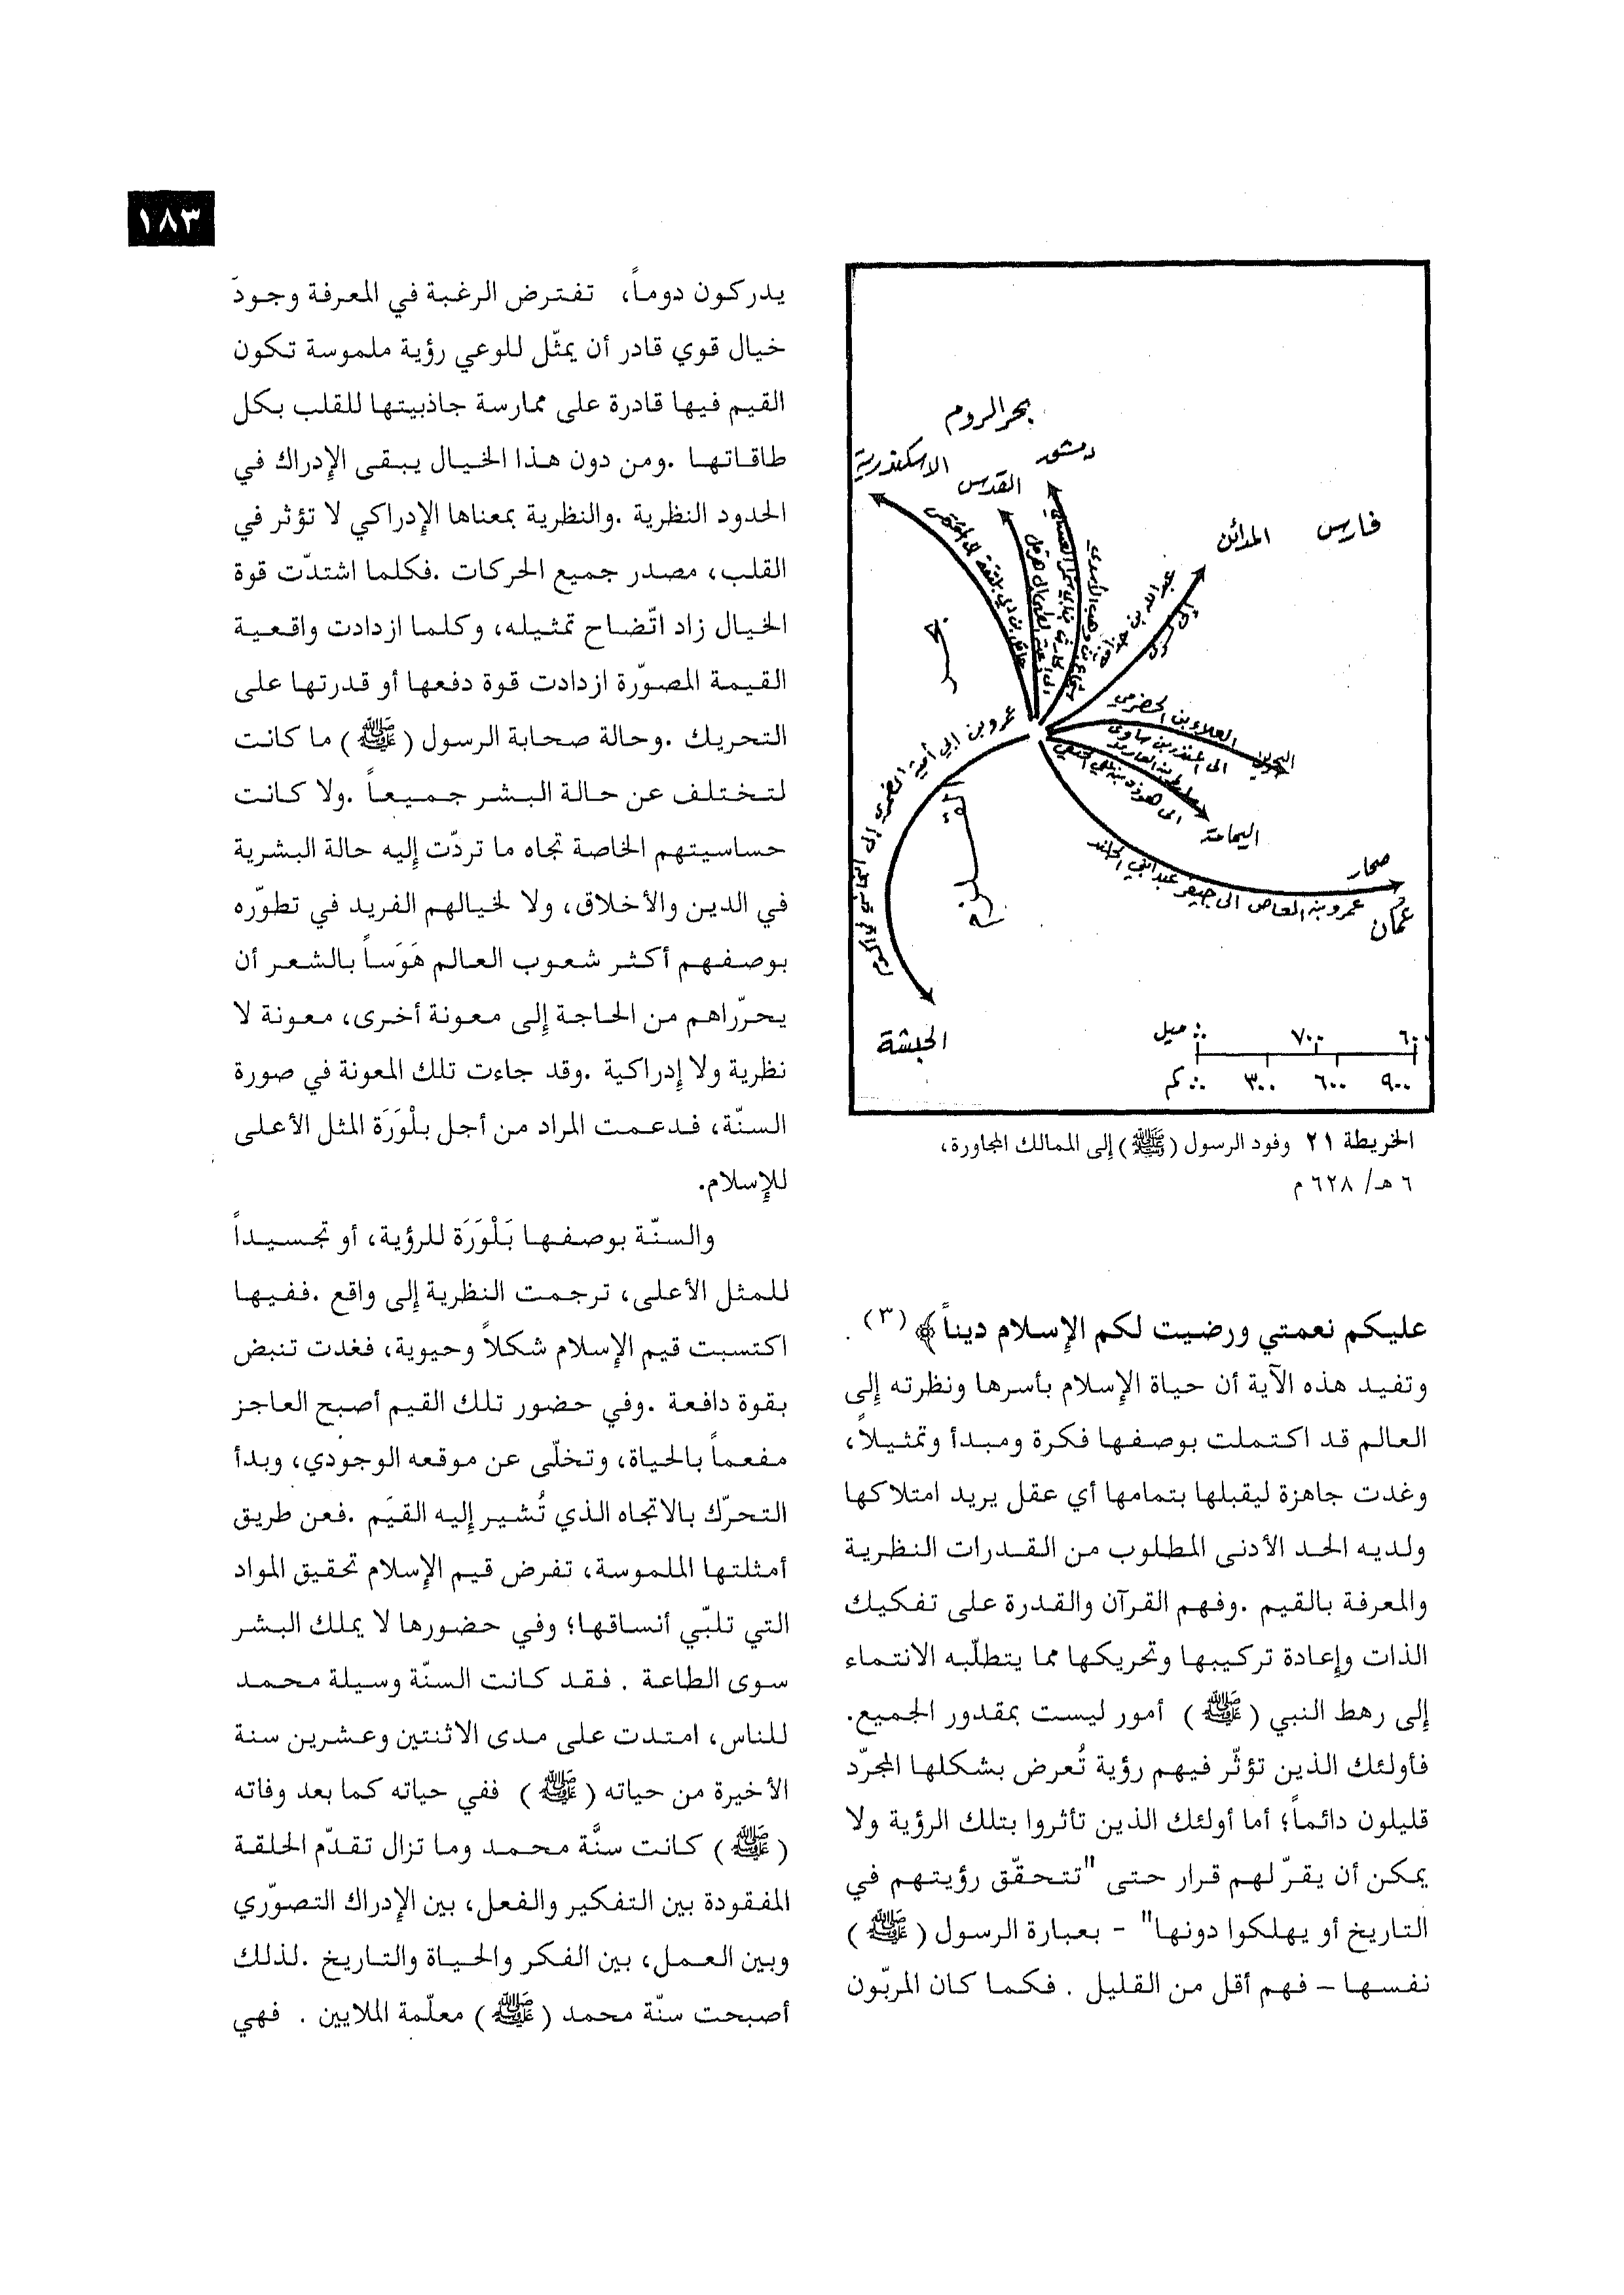 ١٨٣
بحر الروم
دمشق
الاسكندرية
القدس
فارس
المدائن
عبد الله بن
إلى كسرى
بحر
القلزم
العلاء بن الحضرمي
البحرين
الى المنذر بن ساوى
اليمامة
صحار
عُمان
عمرو بن العاص الى جيفر
عمرو بن ابي أمية الضمري إلى
الحبشة
ميل
٦٠٠
كم ٣٠٠ ٦٠٠ ٩٠٠
الخريطة ٢١ وفود الرسول (ﷺ) إلى الممالك المجاورة،
٦ هـ/ ٦٢٨ م
عليكم نعمتي ورضيت لكم الإسلام ديناً﴾ (٣) .
وتفيد هذه الآية أن حياة الإسلام بأسرها ونظرته إلى
العالم قد اكتملت بوصفها فكرة ومبدأ وتمثيلاً،
وغدت جاهزة ليقبلها بتمامها أي عقل يريد امتلاكها
ولديه الحد الأدنى المطلوب من القدرات النظرية
والمعرفة بالقيم .وفهم القرآن والقدرة على تفكيك
الذات وإعادة تركيبها وتحريكها مما يتطلّبه الانتماء
إلى رهط النبي (ﷺ) أمور ليست بمقدور الجميع.
فأولئك الذين تؤثّر فيهم رؤية تُعرض بشكلها المجرّد
قليلون دائماً؛ أما أولئك الذين تأثروا بتلك الرؤية ولا
يمكن أن يقرّ لهم قرار حتى "تتحقّق رؤيتهم في
التاريخ أو يهلكوا دونها" - بعبارة الرسول (ﷺ)
نفسها – فهم أقل من القليل . فكما كان المربّون
يدركون دوماً، تفترض الرغبة في المعرفة وجودَ
خيال قوي قادر أن يمثّل للوعي رؤية ملموسة تكون
القيم فيها قادرة على ممارسة جاذبيتها للقلب بكل
طاقاتها .ومن دون هذا الخيال يبقى الإدراك في
الحدود النظرية .والنظرية بمعناها الإدراكي لا تؤثر في
القلب، مصدر جميع الحركات .فكلما اشتدّت قوة
الخيال زاد اتّضاح تمثيله، وكلما ازدادت واقعية
القيمة المصوّرة ازدادت قوة دفعها أو قدرتها على
التحريك .وحالة صحابة الرسول (ﷺ) ما كانت
لتختلف عن حالة البشر جميعاً .ولا كانت
حساسيتهم الخاصة تجاه ما تردّت إليه حالة البشرية
في الدين والأخلاق، ولا لخيالهم الفريد في تطوّره
بوصفهم أكثر شعوب العالم هَوَساً بالشعر أن
يحرّراهم من الحاجة إلى معونة أخرى، معونة لا
نظرية ولا إدراكية .وقد جاءت تلك المعونة في صورة
السنّة، فدعمت المراد من أجل بلْوَرَة المثل الأعلى
للإسلام.
والسنّة بوصفها بَلْوَرَة للرؤية، أو تجسيداً
للمثل الأعلى، ترجمت النظرية إلى واقع .ففيها
اكتسبت قيم الإسلام شكلاً وحيوية، فغدت تنبض
بقوة دافعة .وفي حضور تلك القيم أصبح العاجز
مفعماً بالحياة، وتخلّى عن موقعه الوجودي، وبدأ
التحرّك بالاتجاه الذي تُشير إليه القيَم .فعن طريق
أمثلتها الملموسة، تفرض قيم الإسلام تحقيق المواد
التي تلبّي أنساقها؛ وفي حضورها لا يملك البشر
سوى الطاعة . فقد كانت السنّة وسيلة محمد
للناس، امتدت على مدى الاثنتين وعشرين سنة
الأخيرة من حياته (ﷺ) ففي حياته كما بعد وفاته
(ﷺ) كانت سنَّة محمد وما تزال تقدّم الحلقة
المفقودة بين التفكير والفعل، بين الإدراك التصوّري
وبين العمل، بين الفكر والحياة والتاريخ .لذلك
أصبحت سنّة محمد (ﷺ) معلّمة الملايين . فهي